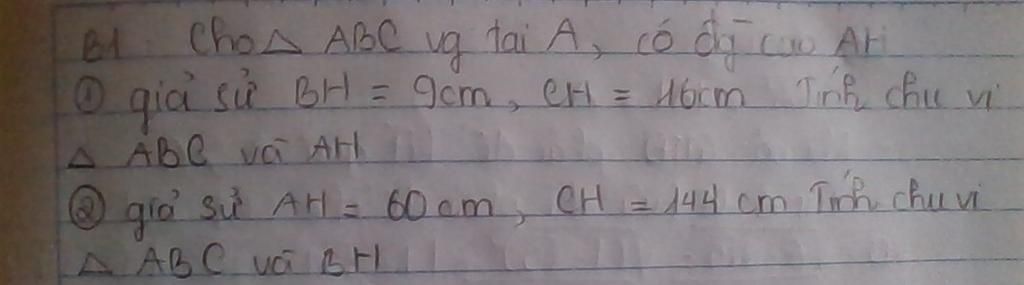 B1 Cho △ ABC vg tại A, có đg cao AH
① giả sử BH = 9cm, CH = 16cm Tính chu vi
△ ABC và AH
② giả sử AH = 60cm, CH = 144 cm Tính chu vi
△ ABC và BH